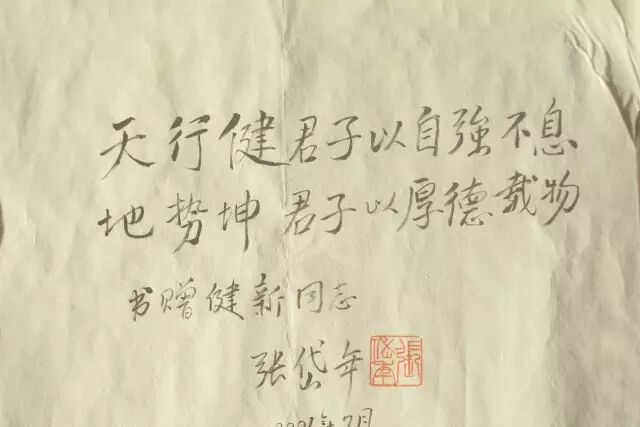 天行健君子以自強不息
地势坤君子以厚德载物
书赠健新同志
张岱年
年7月